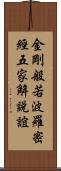 金剛般若波羅密
經五家解説誼